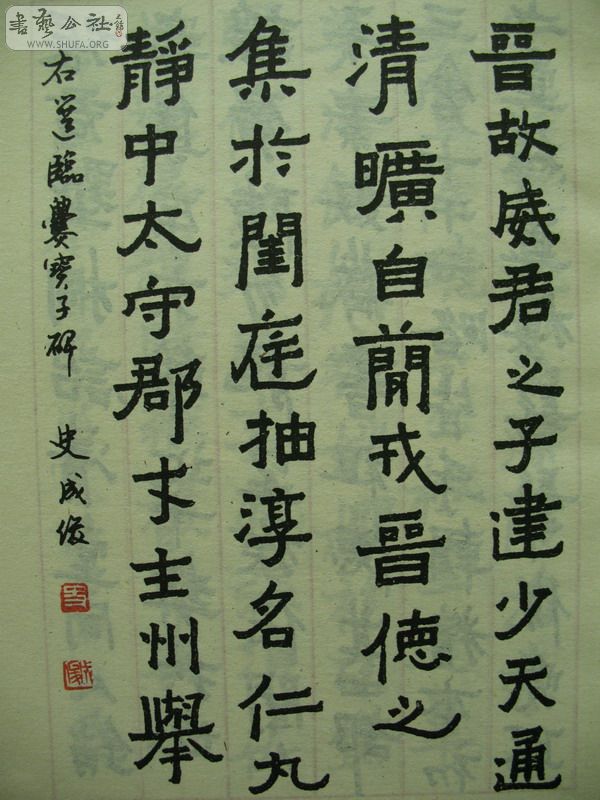 晉故威君之子建少天通
清曠自蕳戎晉德之
集於閨庭抽淳名仁丸
靜中太守郡才主州舉
右選臨爨寶子碑 史成俊
書藝公社
WWW.SHUFA.ORG